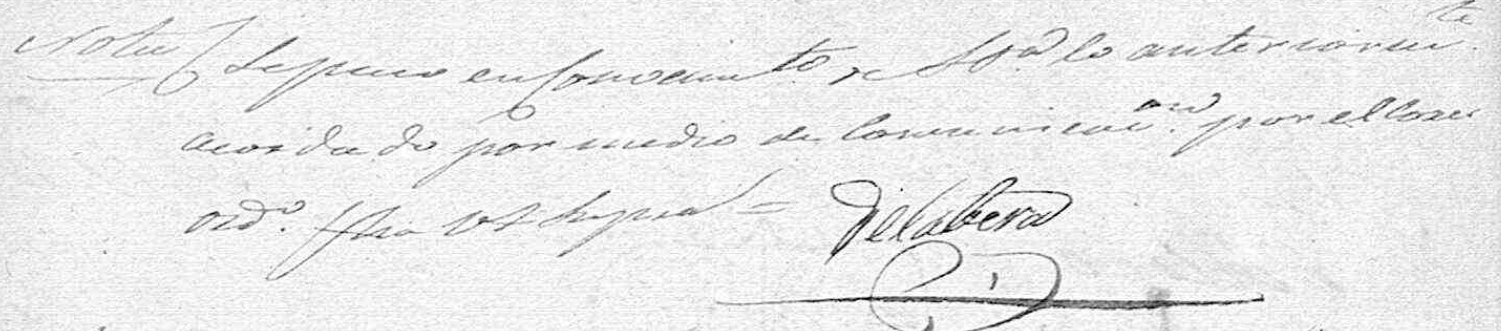 Nota Se puso en Conocimto de Sa lo anteriormte
acordado por medio de Comunicacion por el Correo
ordo. fha Ut Supra =